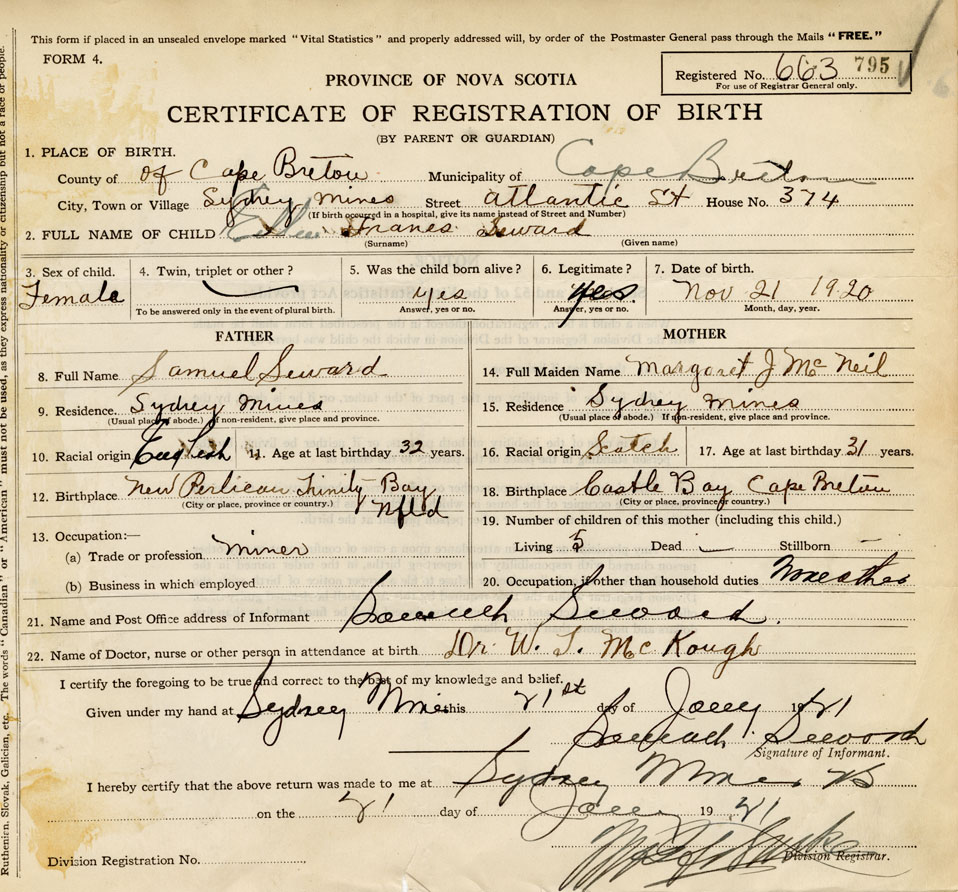 This form if placed in an unsealed envelope marked "Vital Statistics" and properly addressed will, by order of the Postmaster General pass through the Mails "FREE."
FORM 4.
Registered No. 663 795
For use of Registrar General only.
PROVINCE OF NOVA SCOTIA
CERTIFICATE OF REGISTRATION OF BIRTH
(BY PARENT OR GUARDIAN)
1. PLACE OF BIRTH.
County of of Cape Breton Municipality of Cape Breton
City, Town or Village Sydney Mines Street Atlantic St House No. 374
(If birth occurred in a hospital, give its name instead of Street and Number)
2. FULL NAME OF CHILD Franes Seward
(Surname) (Given name)
3. Sex of child. 4. Twin, triplet or other? 5. Was the child born alive? 6. Legitimate? 7. Date of birth.
Female yes yes. Nov 21 1920
To be answered only in the event of plural birth. Answer, yes or no. Answer, yes or no. Month, day, year.
FATHER MOTHER
8. Full Name Samuel Seward 14. Full Maiden Name Margaret J McNeil
9. Residence Sydney Mines 15. Residence Sydney Mines
(Usual place of abode.) If non-resident, give place and province. (Usual place of abode.) If non-resident, give place and province.
10. Racial origin English 11. Age at last birthday 32 years. 16. Racial origin Scotch 17. Age at last birthday 31 years.
12. Birthplace New Perlican Trinity Bay Nfld 18. Birthplace Castle Bay Cape Breton
(City or place, province or country.) (City or place, province or country.)
13. Occupation:— 19. Number of children of this mother (including this child.)
(a) Trade or profession miner Living 5 Dead Stillborn
(b) Business in which employed 20. Occupation, if other than household duties
21. Name and Post Office address of Informant Seward.
22. Name of Doctor, nurse or other person in attendance at birth Dr. W. T. McKough
I certify the foregoing to be true and correct to the best of my knowledge and belief.
Given under my hand at Sydney Mines this 21st day of Jany 1921
Seward
Signature of Informant.
I hereby certify that the above return was made to me at Sydney Mines
on the 21 day of Jany 19 21
Division Registration No. Division Registrar.
Ruthenien, Slovak, Galician, etc. The words "Canadian" or "American" must not be used, as they express nationality or citizenship but not a race or people.